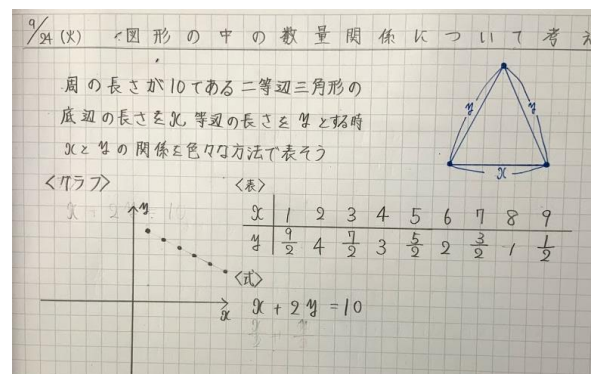 9/24 (火) 図形の中の数量関係について考え
周の長さが10である二等辺三角形の
底辺の長さをx, 等辺の長さをyとする時
xとyの関係を色々な方法で表そう
y y
x
<グラフ>
<表>
x 1 2 3 4 5 6 7 8 9
y 9/2 4 7/2 3 5/2 2 3/2 1 1/2
y
x
<式>
x + 2y = 10